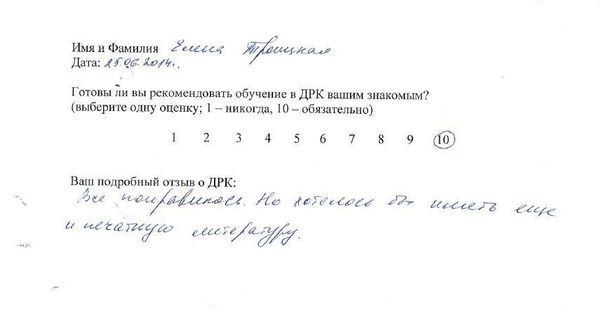 Имя и Фамилия Елена Троицкая
Дата: 25.06.2014г.
Готовы ли вы рекомендовать обучение в ДРК вашим знакомым?
(выберите одну оценку; 1 – никогда, 10 – обязательно)
1 2 3 4 5 6 7 8 9 10
Ваш подробный отзыв о ДРК:
Все понравилось. Но хотелось бы иметь еще
и печатную литературу.